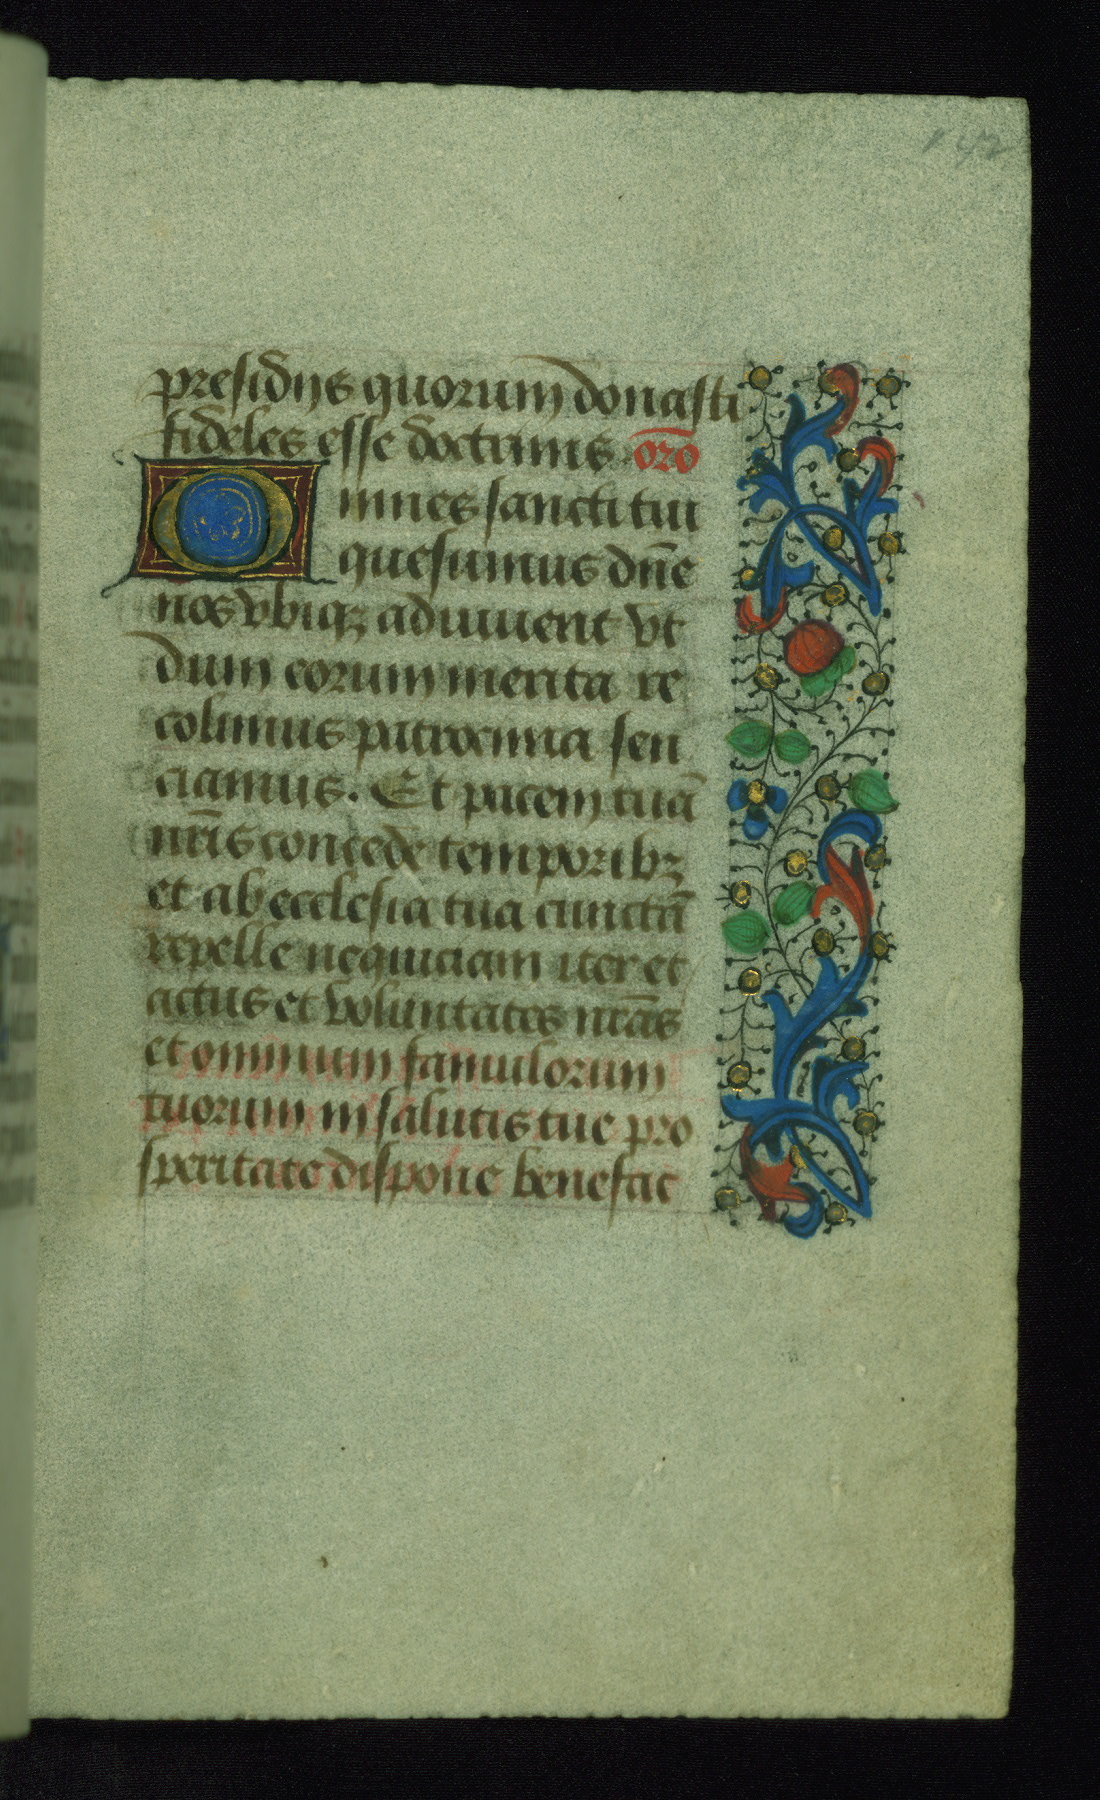 142
presidijs quorum donasti
fideles esse doctrinis oro̅
Omnes sancti tui
quesumus dn̅e
nos vbiqz adiuuent vt
dum eorum merita re
colimus patrocinia sen
ciamus. Et pacem tuā
nr̅is concede temporibz
et ab ecclesia tua cunctā
repelle nequiciam iter et
actus et voluntates nr̅as
et omnium famulorum
tuorum in salutis tue pro
speritate dispone benefac